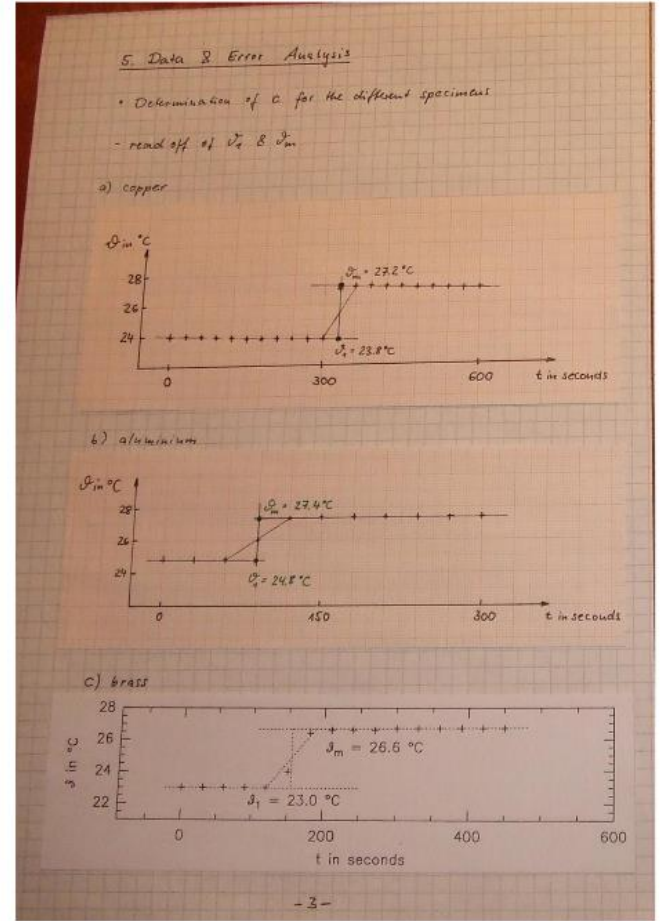 5. Data & Error Analysis
• Determination of c for the different specimens
- read off of ϑ₁ & ϑₘ
a) copper
ϑ in °C
ϑₘ = 27.2°C
28
26
24
ϑ₁ = 23.8°C
0 300 600 t in seconds
b) aluminium
ϑ in °C
ϑₘ = 27.4°C
28
26
24
ϑ₁ = 24.8°C
0 150 300 t in seconds
c) brass
28
26
24
22
ϑ in °C
ϑₘ = 26.6 °C
ϑ₁ = 23.0 °C
0 200 400 600
t in seconds
- 3 -